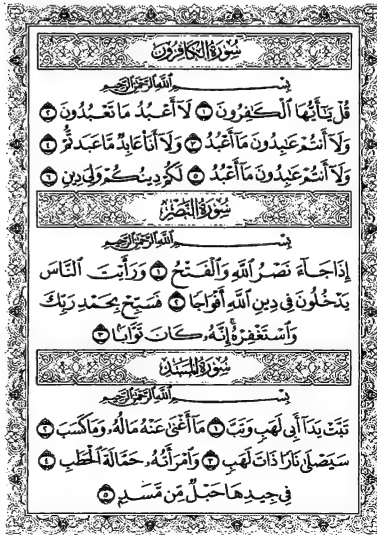 سُورَةُ الْكَافِرُونَ
بِسْمِ اللَّهِ الرَّحْمَٰنِ الرَّحِيمِ
قُلْ يَٰٓأَيُّهَا ٱلْكَٰفِرُونَ ١ لَآ أَعْبُدُ مَا تَعْبُدُونَ ٢
وَلَآ أَنتُمْ عَٰبِدُونَ مَآ أَعْبُدُ ٣ وَلَآ أَنَا۠ عَابِدٌ مَّا عَبَدتُّمْ ٤
وَلَآ أَنتُمْ عَٰبِدُونَ مَآ أَعْبُدُ ٥ لَكُمْ دِينُكُمْ وَلِيَ دِينِ ٦
سُورَةُ النَّصْرِ
بِسْمِ اللَّهِ الرَّحْمَٰنِ الرَّحِيمِ
إِذَا جَآءَ نَصْرُ ٱللَّهِ وَٱلْفَتْحُ ١ وَرَأَيْتَ ٱلنَّاسَ
يَدْخُلُونَ فِى دِينِ ٱللَّهِ أَفْوَاجًا ٢ فَسَبِّحْ بِحَمْدِ رَبِّكَ
وَٱسْتَغْفِرْهُ إِنَّهُۥ كَانَ تَوَّابًۢا ٣
سُورَةُ الْمَسَدِ
بِسْمِ اللَّهِ الرَّحْمَٰنِ الرَّحِيمِ
تَبَّتْ يَدَآ أَبِى لَهَبٍ وَتَبَّ ١ مَآ أَغْنَىٰ عَنْهُ مَالُهُۥ وَمَا كَسَبَ ٢
سَيَصْلَىٰ نَارًا ذَاتَ لَهَبٍ ٣ وَٱمْرَأَتُهُۥ حَمَّالَةَ ٱلْحَطَبِ ٤
فِى جِيدِهَا حَبْلٌ مِّن مَّسَدٍۭ ٥